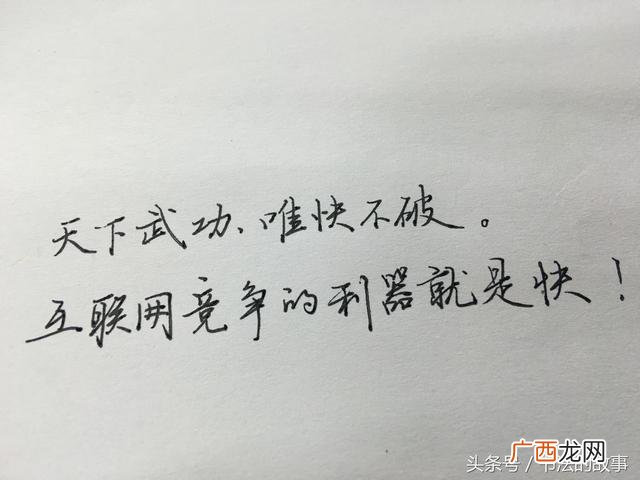 天下武功、唯快不破。
互联网竞争的利器就是快！
广西龙网
头条号 / 书法的故事